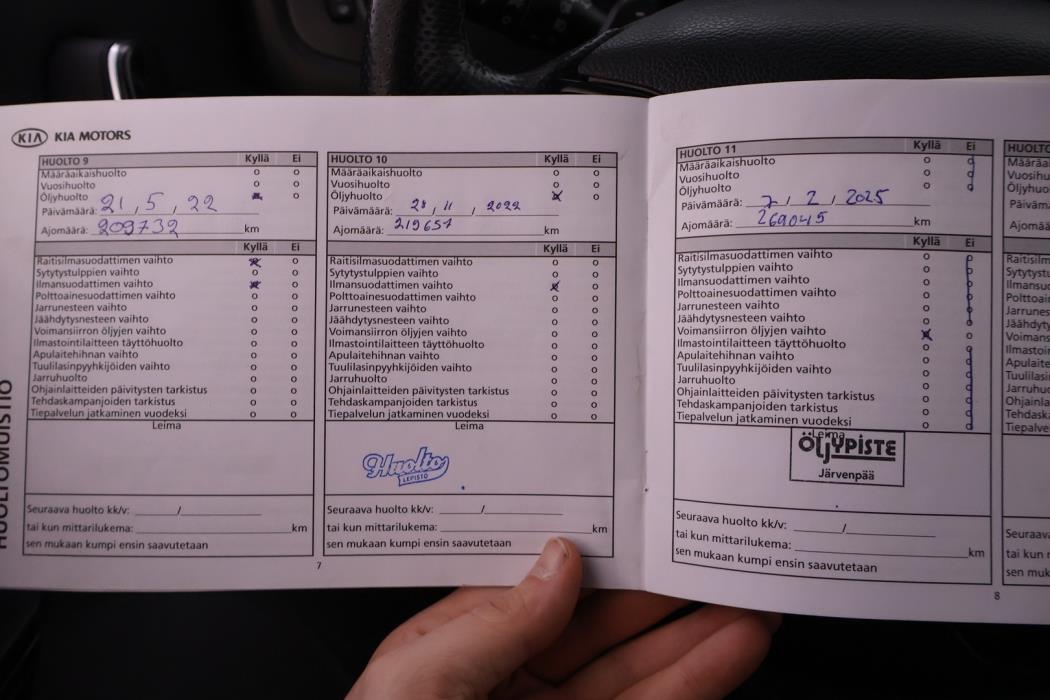 KIA KIA MOTORS
HUOLTO 9 Kyllä Ei
Määräaikaishuolto o o
Vuosihuolto o o
Öljyhuolto x o
Päivämäärä: 21, 5, 22
Ajomäärä: 209732 km
Kyllä Ei
Raitisilmasuodattimen vaihto x o
Sytytystulppien vaihto o o
Ilmansuodattimen vaihto x o
Polttoainesuodattimen vaihto o o
Jarrunesteen vaihto o o
Jäähdytysnesteen vaihto o o
Voimansiirron öljyjen vaihto o o
Ilmastointilaitteen täyttöhuolto o o
Apulaitehihnan vaihto o o
Tuulilasinpyyhkijöiden vaihto o o
Jarruhuolto o o
Ohjainlaitteiden päivitysten tarkistus o o
Tehdaskampanjoiden tarkistus o o
Tiepalvelun jatkaminen vuodeksi o o
Leima
Seuraava huolto kk/v: /
tai kun mittarilukema: km
sen mukaan kumpi ensin saavutetaan
7
HUOLTO 10 Kyllä Ei
Määräaikaishuolto o o
Vuosihuolto o o
Öljyhuolto x o
Päivämäärä: 28, 11, 2022
Ajomäärä: km
Kyllä Ei
Raitisilmasuodattimen vaihto o o
Sytytystulppien vaihto o o
Ilmansuodattimen vaihto x o
Polttoainesuodattimen vaihto o o
Jarrunesteen vaihto o o
Jäähdytysnesteen vaihto o o
Voimansiirron öljyjen vaihto o o
Ilmastointilaitteen täyttöhuolto o o
Apulaitehihnan vaihto o o
Tuulilasinpyyhkijöiden vaihto o o
Jarruhuolto o o
Ohjainlaitteiden päivitysten tarkistus o o
Tehdaskampanjoiden tarkistus o o
Tiepalvelun jatkaminen vuodeksi o o
Leima
Huolto
LEPISTÖ
Seuraava huolto kk/v: /
tai kun mittarilukema: km
sen mukaan kumpi ensin saavutetaan
HUOLTO 11 Kyllä Ei
Määräaikaishuolto o o
Vuosihuolto o o
Öljyhuolto o o
Päivämäärä: 7, 2, 2025
Ajomäärä: 269045 km
Kyllä Ei
Raitisilmasuodattimen vaihto o o
Sytytystulppien vaihto o o
Ilmansuodattimen vaihto o o
Polttoainesuodattimen vaihto o o
Jarrunesteen vaihto o o
Jäähdytysnesteen vaihto o o
Voimansiirron öljyjen vaihto x o
Ilmastointilaitteen täyttöhuolto o o
Apulaitehihnan vaihto o o
Tuulilasinpyyhkijöiden vaihto o o
Jarruhuolto o o
Ohjainlaitteiden päivitysten tarkistus o o
Tehdaskampanjoiden tarkistus o o
Tiepalvelun jatkaminen vuodeksi o o
Leima
ÖLJYPISTE
Järvenpää
Seuraava huolto kk/v: /
tai kun mittarilukema: km
sen mukaan kumpi ensin saavutetaan
8